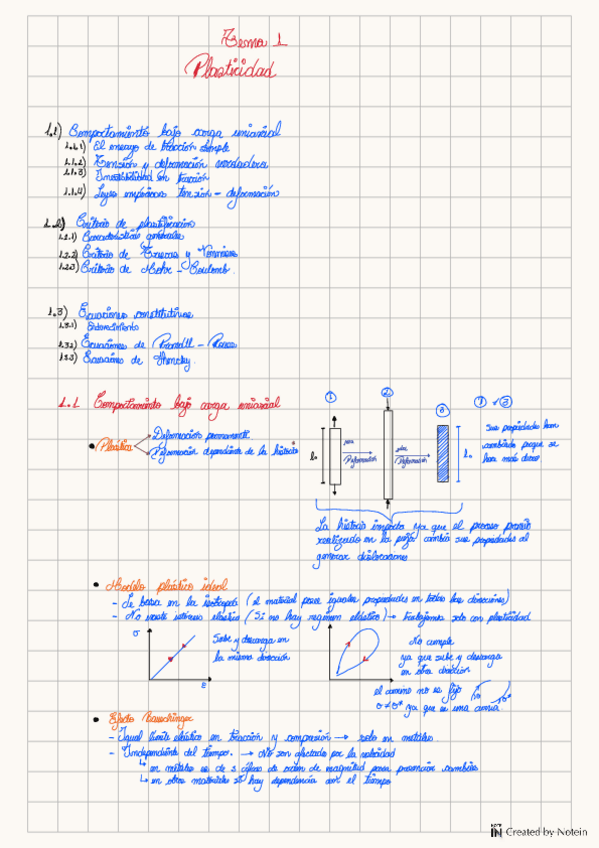 Tema 1
Plasticidad
1.1) Comportamiento bajo carga uniaxial
1.1.1) El ensayo de tracción simple
1.1.2) Tensión y deformación verdadera
1.1.3) Inestabilidad en tracción
1.1.4) Leyes empíricas tensión - deformación
1.2) Criterio de plastificación
1.2.1) Características generales
1.2.2) Critério de Tresca y Von Mises
1.2.3) Critério de Mohr - Coulomb.
1.3) Ecuaciones constitutivas
1.3.1) Endurecimiento
1.3.2) Ecuaciones de Prandtl - Reuss
1.3.3) Ecuaciones de Hencky.
1.1 Comportamiento bajo carga uniaxial
Plástica
Deformación permanente
Deformación dependiente de la historia
1
2
3
1 ≠ 3
l₀
Deformación
Deformación
l₀
Sus propiedades han
cambiado porque se
han más duro
La historia importa ya que el proceso previo
realizado en la pieza cambia sus propiedades al
generar dislocaciones
Modelo plástico ideal
- Se basa en la isotropía (el material posee iguales propiedades en todas las direcciones)
- No existe histéresis elástica (Si no hay regimen elástico) → trabajamos solo con plasticidad
σ
ε
Sube y descarga en
la misma dirección
No cumple
ya que sube y descarga
en otra dirección
el camino no es fijo
ya que es una curva.
Efecto Bauschinger
- Igual límite elástico en tracción y compresión → solo en metales.
- Independiente del tiempo. → No son afectados por la velocidad
en metales es de 3 cifras de orden de magnitud para presenciar cambios
en otros materiales si hay dependencia con el tiempo
NOTE IN Created by Notein